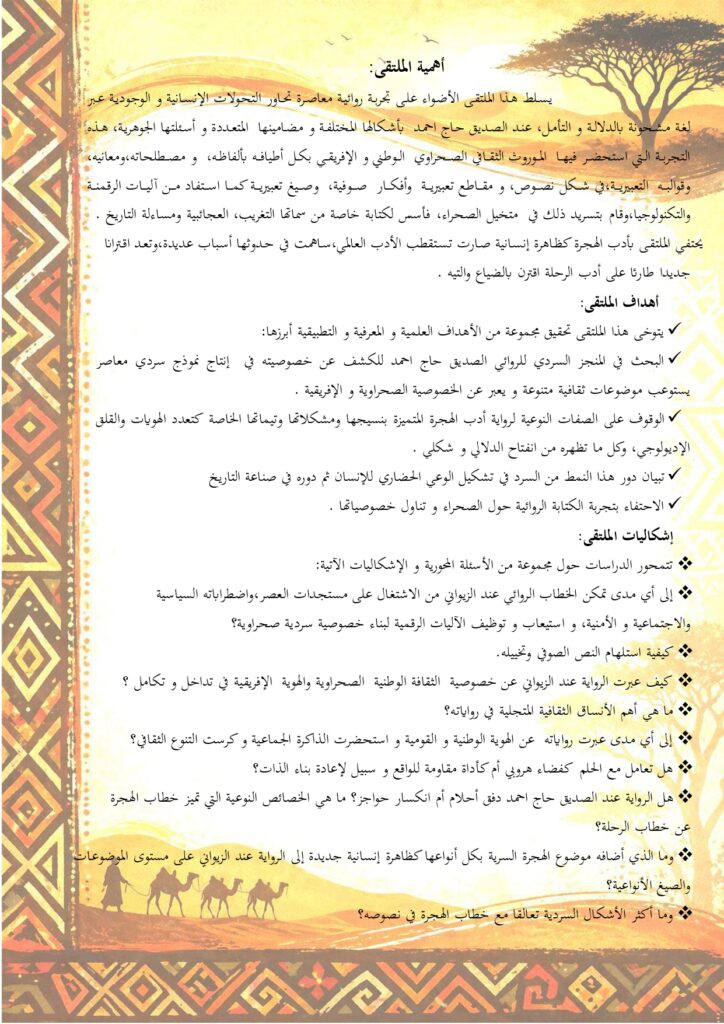 أهمية الملتقى:
يسلط هذا الملتقى الأضواء على تجربة روائية معاصرة تحاور التحولات الإنسانية و الوجودية عبر
لغة مشحونة بالدلالة و التأمل، عند الصديق حاج احمد بأشكالها المختلفة و مضامينها المتعددة و أسئلتها الجوهرية، هذه
التجربة التي استحضر فيها الموروث الثقافي الصحراوي الوطني و الإفريقي بكل أطيافه بألفاظه، و مصطلحاته،ومعانيه،
وقوالبه التعبيرية،في شكل نصوص، و مقاطع تعبيرية وأفكار صوفية، وصيغ تعبيرية كما استفاد من آليات الرقمنة
والتكنولوجيا،وقام بتسريد ذلك في متخيل الصحراء، فأسس لكتابة خاصة من سماتها التغريب، العجائبية ومساءلة التاريخ .
يحتفي الملتقى بأدب الهجرة كظاهرة إنسانية صارت تستقطب الأدب العالمي،ساهمت في حدوثها أسباب عديدة،وتعد اقترانا
جديدا طارئا على أدب الرحلة اقترن بالضياع والتيه .
أهداف الملتقى:
✓ يتوخى هذا الملتقى تحقيق مجموعة من الأهداف العلمية و المعرفية و التطبيقية أبرزها:
✓ البحث في المنجز السردي للروائي الصديق حاج احمد للكشف عن خصوصيته في إنتاج نموذج سردي معاصر
يستوعب موضوعات ثقافية متنوعة و يعبر عن الخصوصية الصحراوية و الإفريقية .
✓ الوقوف على الصفات النوعية لرواية أدب الهجرة المتميزة بنسيجها ومشكلاتها وتيماتها الخاصة كتعدد الهويات والقلق
الإديولوجي، وكل ما تظهره من انفتاح الدلالي و شكلي .
✓ تبيان دور هذا النمط من السرد في تشكيل الوعي الحضاري للإنسان ثم دوره في صناعة التاريخ
✓ الاحتفاء بتجربة الكتابة الروائية حول الصحراء و تناول خصوصياتها .
إشكاليات الملتقى:
❖ تتمحور الدراسات حول مجموعة من الأسئلة المحورية و الإشكاليات الآتية:
❖ إلى أي مدى تمكن الخطاب الروائي عند الزيواني من الاشتغال على مستجدات العصر،واضطراباته السياسية
والاجتماعية و الأمنية، و استيعاب و توظيف الآليات الرقمية لبناء خصوصية سردية صحراوية؟
❖ كيفية استلهام النص الصوفي وتخييله.
❖ كيف عبرت الرواية عند الزيواني عن خصوصية الثقافة الوطنية الصحراوية والهوية الإفريقية في تداخل و تكامل ؟
❖ ما هي أهم الأنساق الثقافية المتجلية في رواياته؟
❖ إلى أي مدى عبرت رواياته عن الهوية الوطنية و القومية و استحضرت الذاكرة الجماعية و كرست التنوع الثقافي؟
❖ هل تعامل مع الحلم كفضاء هروبي أم كأداة مقاومة للواقع و سبيل لإعادة بناء الذات؟
❖ هل الرواية عند الصديق حاج احمد دفق أحلام أم انكسار حواجز؟ ما هي الخصائص النوعية التي تميز خطاب الهجرة
عن خطاب الرحلة؟
❖ وما الذي أضافه موضوع الهجرة السرية بكل أنواعها كظاهرة إنسانية جديدة إلى الرواية عند الزيواني على مستوى الموضوعات
والصيغ الأنواعية؟
❖ وما أكثر الأشكال السردية تعالقا مع خطاب الهجرة في نصوصه؟